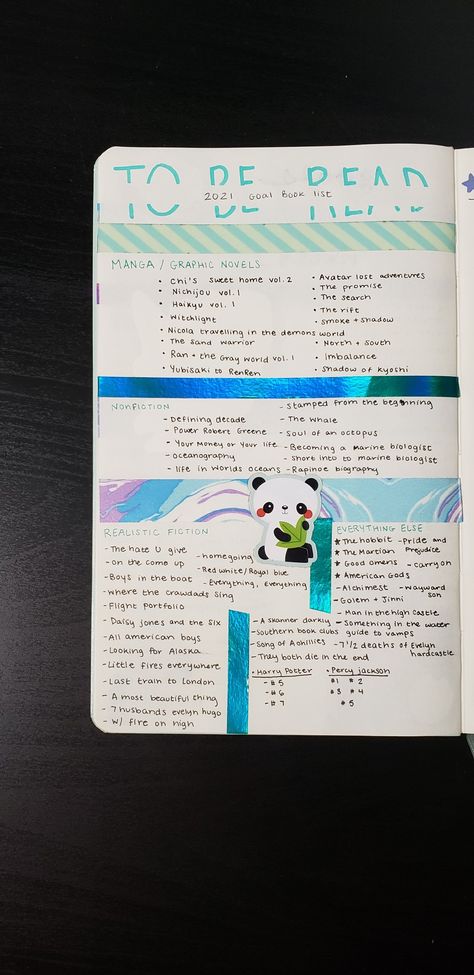 TO BE READ
2021 Goal Book list
MANGA / GRAPHIC NOVELS
• Chi's sweet home vol. 2
• Nichijou vol. 1
• Haikyu vol. 1
• Witchlight
• Nicola travelling in the demons world
• The sand warrior
• Ran + the Gray world vol. 1
• Yubisaki to RenRen
• Avatar lost adventures
• The promise
• The search
• The rift
• Smoke + shadow
• North + South
• Imbalance
• Shadow of kyoshi
NONFICTION
- Defining decade
- Power Robert Greene
- Your Money or Your life
- oceanography
- life in worlds oceans
- Stamped from the beginning
- The whale
- Soul of an octopus
- Becoming a marine biologist
- Short into to marine biologist
- Rapinoe biography
REALISTIC FICTION
- The hate U give
- on the come up
- Boys in the boat
- where the crawdads sing
- Flight portfolio
- Daisy jones and the six
- All american boys
- Looking for Alaska
- Little fires everywhere
- Last train to London
- A most beautiful thing
- 7 husbands evelyn hugo
- w/ fire on high
- homegoing
- Red white/Royal blue
- Everything, everything
EVERYTHING ELSE
★ The hobbit
★ The Martian
★ Good omens
★ American Gods
- Alchimest
- Golem + Jinni
- Man in the high castle
- Something in the water
- Pride and
Prejudice
- carry on
- wayward
son
- A skanner darkly
- Southern book clubs guide to vamps
- Song of Achillies
- 7 1/2 deaths of Evelyn
hardcastle
- They both die in the end
• Harry Potter
- #5
- #6
- #7
• Percy jackson
#1 #2
#3 #4
#5